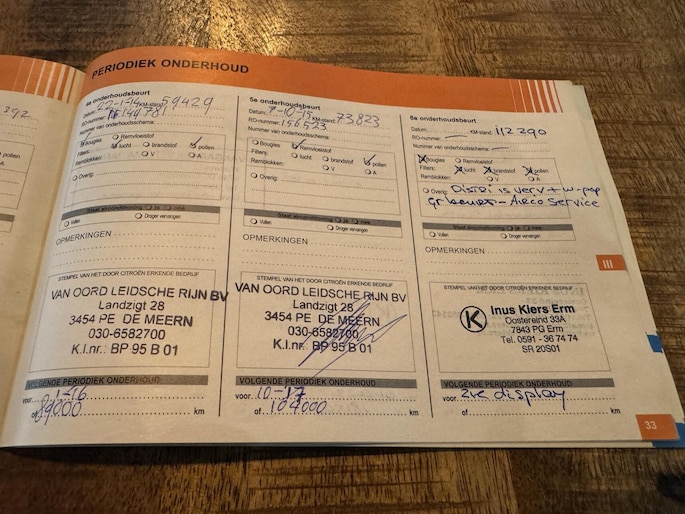 392
pollen
A
PERIODIEK ONDERHOUD
4e onderhoudsbeurt
Datum: 22-1-14 KM-stand: 59429
RO-nummer:
Nummer van onderhoudsschema:
Bougies Remvloeistof
Filters: lucht brandstof pollen
Remblokken: V A
Overig:
Staat airconditioning Ja nee
Vullen Droger vervangen
OPMERKINGEN
STEMPEL VAN HET DOOR CITROËN ERKENDE BEDRIJF
VAN OORD LEIDSCHE RIJN BV
Landzigt 28
3454 PE DE MEERN
030-6582700
K.I.nr.: BP 95 B 01
VOLGENDE PERIODIEK ONDERHOUD
voor 1-16
of 89000 km
5e onderhoudsbeurt
Datum: 7-10-15 KM-stand: 73823
RO-nummer: 156523
Nummer van onderhoudsschema:
Bougies Remvloeistof
Filters: lucht brandstof pollen
Remblokken: V A
Overig:
Staat airconditioning Ja nee
Vullen Droger vervangen
OPMERKINGEN
STEMPEL VAN HET DOOR CITROËN ERKENDE BEDRIJF
VAN OORD LEIDSCHE RIJN BV
Landzigt 28
3454 PE DE MEERN
030-6582700
K.I.nr.: BP 95 B 01
VOLGENDE PERIODIEK ONDERHOUD
voor 10-17
of 104000 km
6e onderhoudsbeurt
Datum: KM-stand: 112290
RO-nummer:
Nummer van onderhoudsschema:
Bougies Remvloeistof
Filters: lucht brandstof pollen
Remblokken: V A
Overig: Distri is verv + w-pop
gr beurt - Airco service
Staat airconditioning Ja nee
Vullen Droger vervangen
OPMERKINGEN
STEMPEL VAN HET DOOR CITROËN ERKENDE BEDRIJF
K
Inus Kiers Erm
Oostereind 33A
7843 PG Erm
Tel. 0591 - 36 74 74
SR 20S01
VOLGENDE PERIODIEK ONDERHOUD
voor zie display
of km
III
33